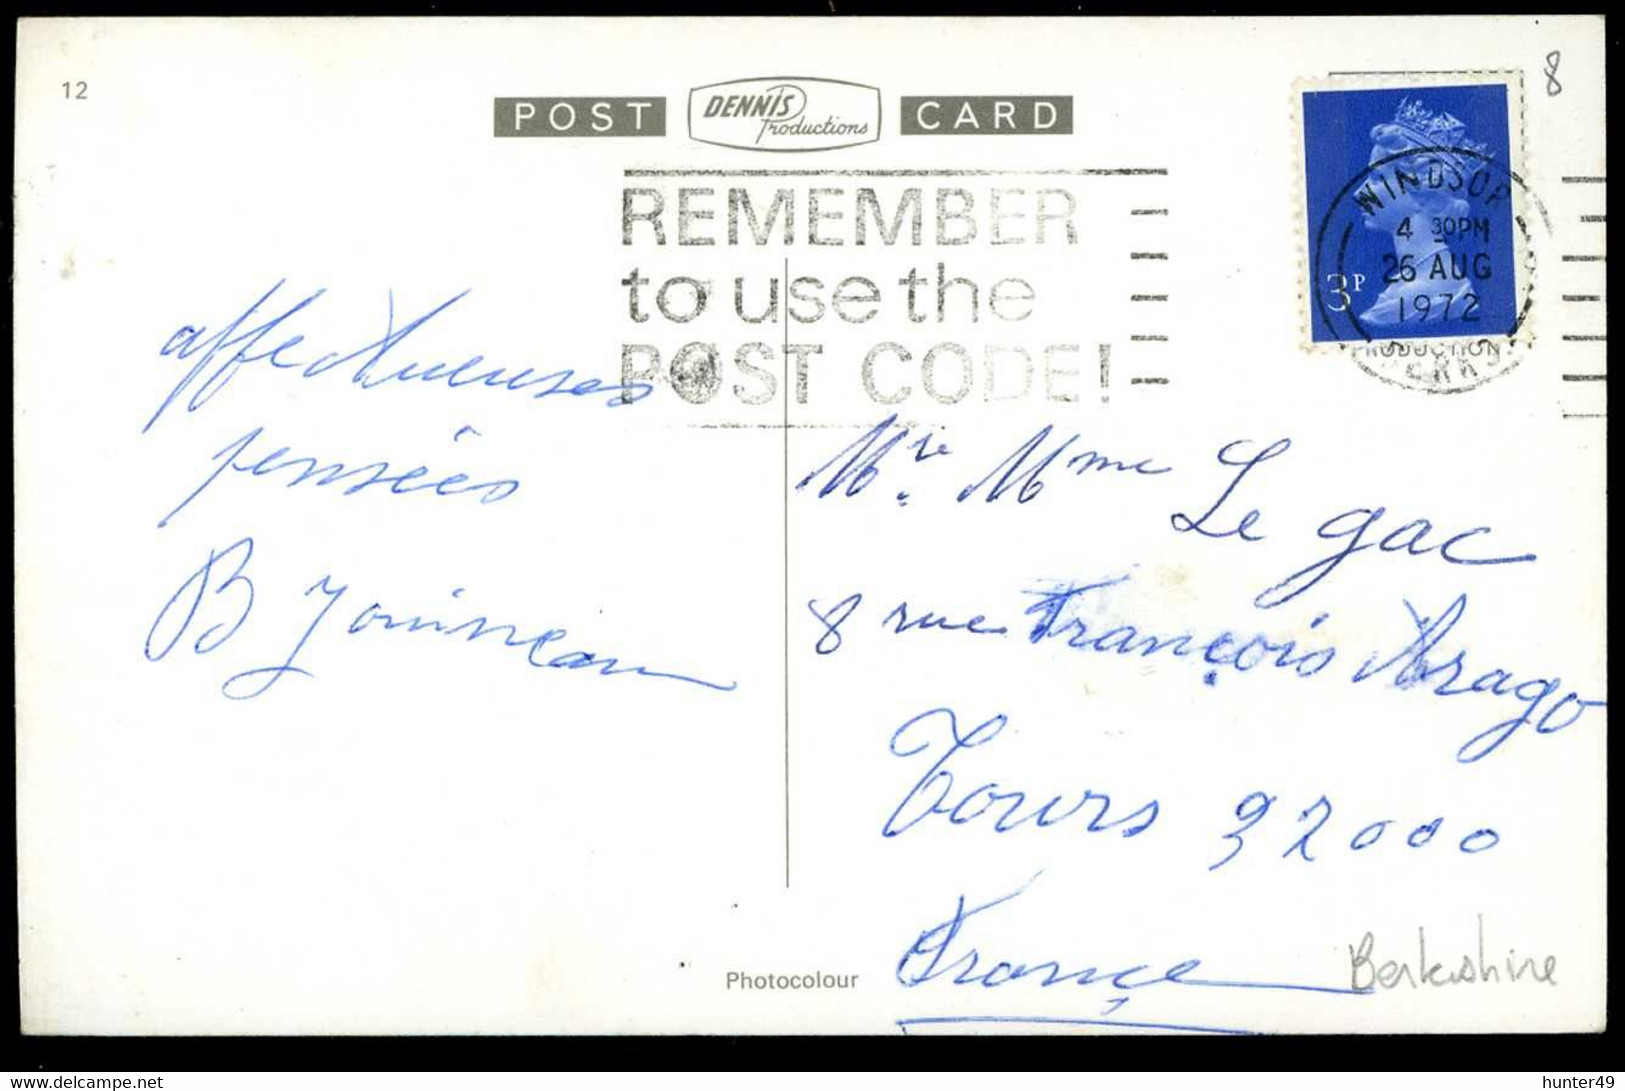 12
8
POST DENNIS Productions CARD
REMEMBER
to use the
POST CODE!
WINDSOR
4 30PM
26 AUG
1972
BERKS
3P
affectueuses
pensées
B Joinneau
Mr. Mme Le gac
8 rue François Arago
Tours 37000
Françe
Photocolour
Berkshire
delcampe.net
hunter49